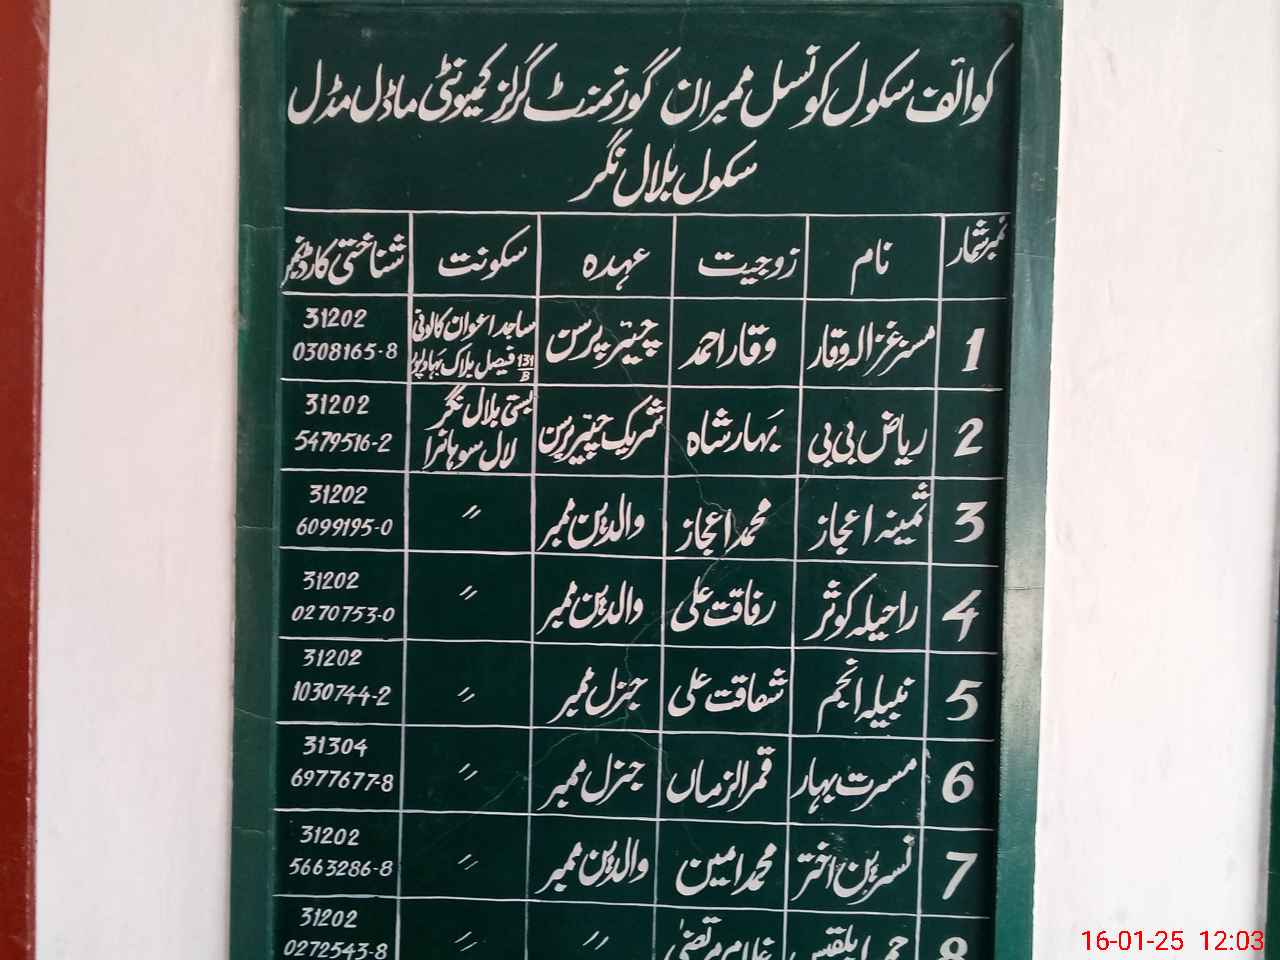 کوائف سکول کونسل ممبران گورنمنٹ گرلز کمیونٹی ماڈل مڈل
سکول بلال نگر
نمبر شمار نام زوجیت عہدہ سکونت شناختی کارڈ نمبر
1 مسز غزالہ وقار وقار احمد چیئر پرسن ساجد اعوان کالونی 31202
131/B فیصل بلاک بہاولپور 0308165-8
2 ریاض بی بی بہار شاہ شریک چیئر پرسن بستی بلال نگر 31202
لال سوہانرا 5479516-2
3 ثمینہ اعجاز محمد اعجاز والدین ممبر 〃 31202
6099195-0
4 راحیلہ کوثر رفاقت علی والدین ممبر 〃 31202
0270753-0
5 نبیلہ انجم شفاقت علی جنرل ممبر 〃 31202
1030744-2
6 مسرت بہار قمر الزماں جنرل ممبر 〃 31304
6977677-8
7 نسرین اختر محمد امین والدین ممبر 〃 31202
5663286-8
8 غلام مرتضیٰ 〃 〃 31202
0272543-8
16-01-25 12:03